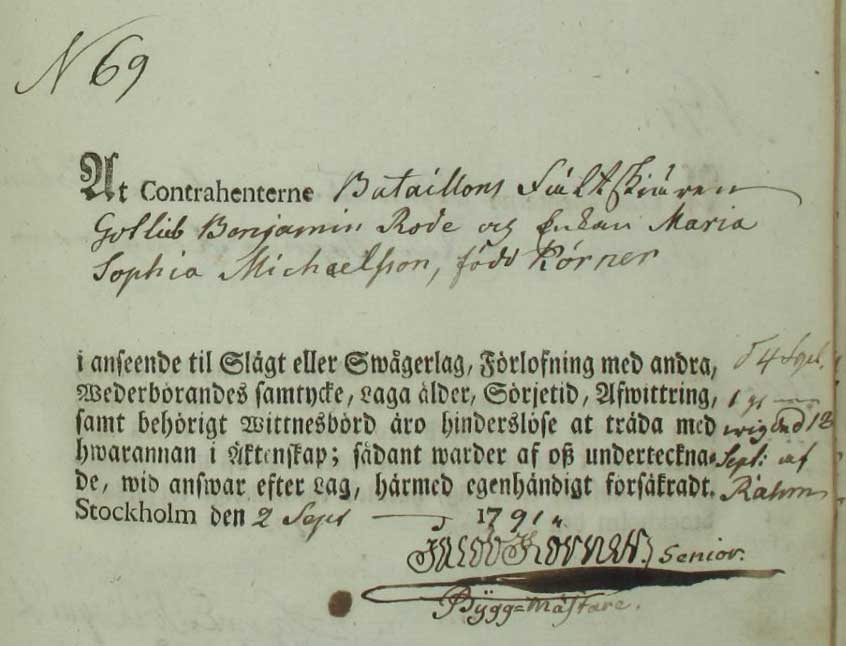 N 69
At Contrahenterne Bataillons Fältskiären
Gotlieb Benjamin Rode och Enkan Maria
Sophia Michaelsson, född Körner
i anseende til Slägt eller Swågerlag, Förlofning med andra,
Wederbörandes samtycke, Laga ålder, Sörjetid, Afwittring,
samt behörigt Wittnesbörd äro hinderslöse at träda med
hwarannan i Äktenskap; sådant warder af oß underteckna-
de, wid answar efter Lag, härmed egenhändigt försäkradt.
Stockholm den 2 Sept 1791
Jacob Körner Senior.
Bygg=Mästare.
d 4 Sept.
1 gn
wigd d 18
Sept: af
Rahm